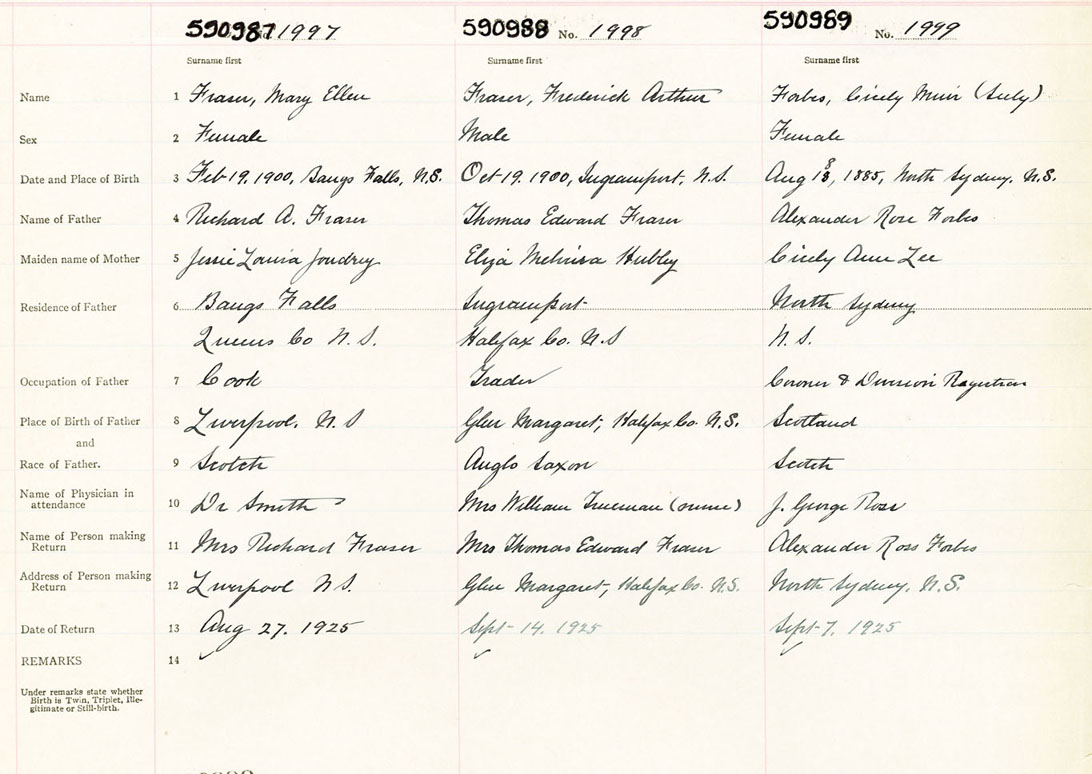 590987 1997 590988 No. 1998 590989 No. 1999
Surname first Surname first Surname first
Name 1 Fraser, Mary Ellen Fraser, Frederick Arthur Forbes, Cicely Muir
Sex 2 Female Male Female
Date and Place of Birth 3 Feb 19. 1900, Bangs Falls, N.S. Oct 19. 1900, Ingramport, N.S. Aug 1885, North Sydney. N.S.
Name of Father 4 Richard A. Fraser Thomas Edward Fraser Alexander Rose Forbes
Maiden name of Mother 5 Jessie Louisa Joudrey Eliza Hubley Cicely Ann Lee
Residence of Father 6 Bangs Falls Ingramport North Sydney
Queens Co N.S. Halifax Co. N.S N.S.
Occupation of Father 7 Cook Trader Coroner & Division Registrar
Place of Birth of Father 8 Liverpool. N.S Glen Margaret, Halifax Co. N.S. Scotland
and
Race of Father. 9 Scotch Anglo Saxon Scotch
Name of Physician in
attendance 10 Dr Smith Mrs William Trueman (nurse) J. George Ross
Name of Person making
Return 11 Mrs Richard Fraser Mrs Thomas Edward Fraser Alexander Ross Forbes
Address of Person making
Return 12 Liverpool N.S. Glen Margaret, Halifax Co. N.S. North Sydney. N.S.
Date of Return 13 Aug 27. 1925 Sept-14. 1925 Sept-7. 1925
REMARKS 14
Under remarks state whether
Birth is Twin, Triplet, Ille-
gitimate or Still-birth.